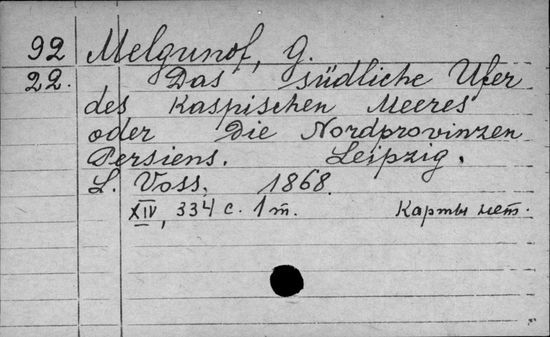 92 Melgunof, G.
22. Das südliche Ufer
des Kaspischen Meeres
oder Die Nordprovinzen
Persiens. Leipzig.
L. Voss. 1868.
XIV, 334 с. 1 т. Карты нет.